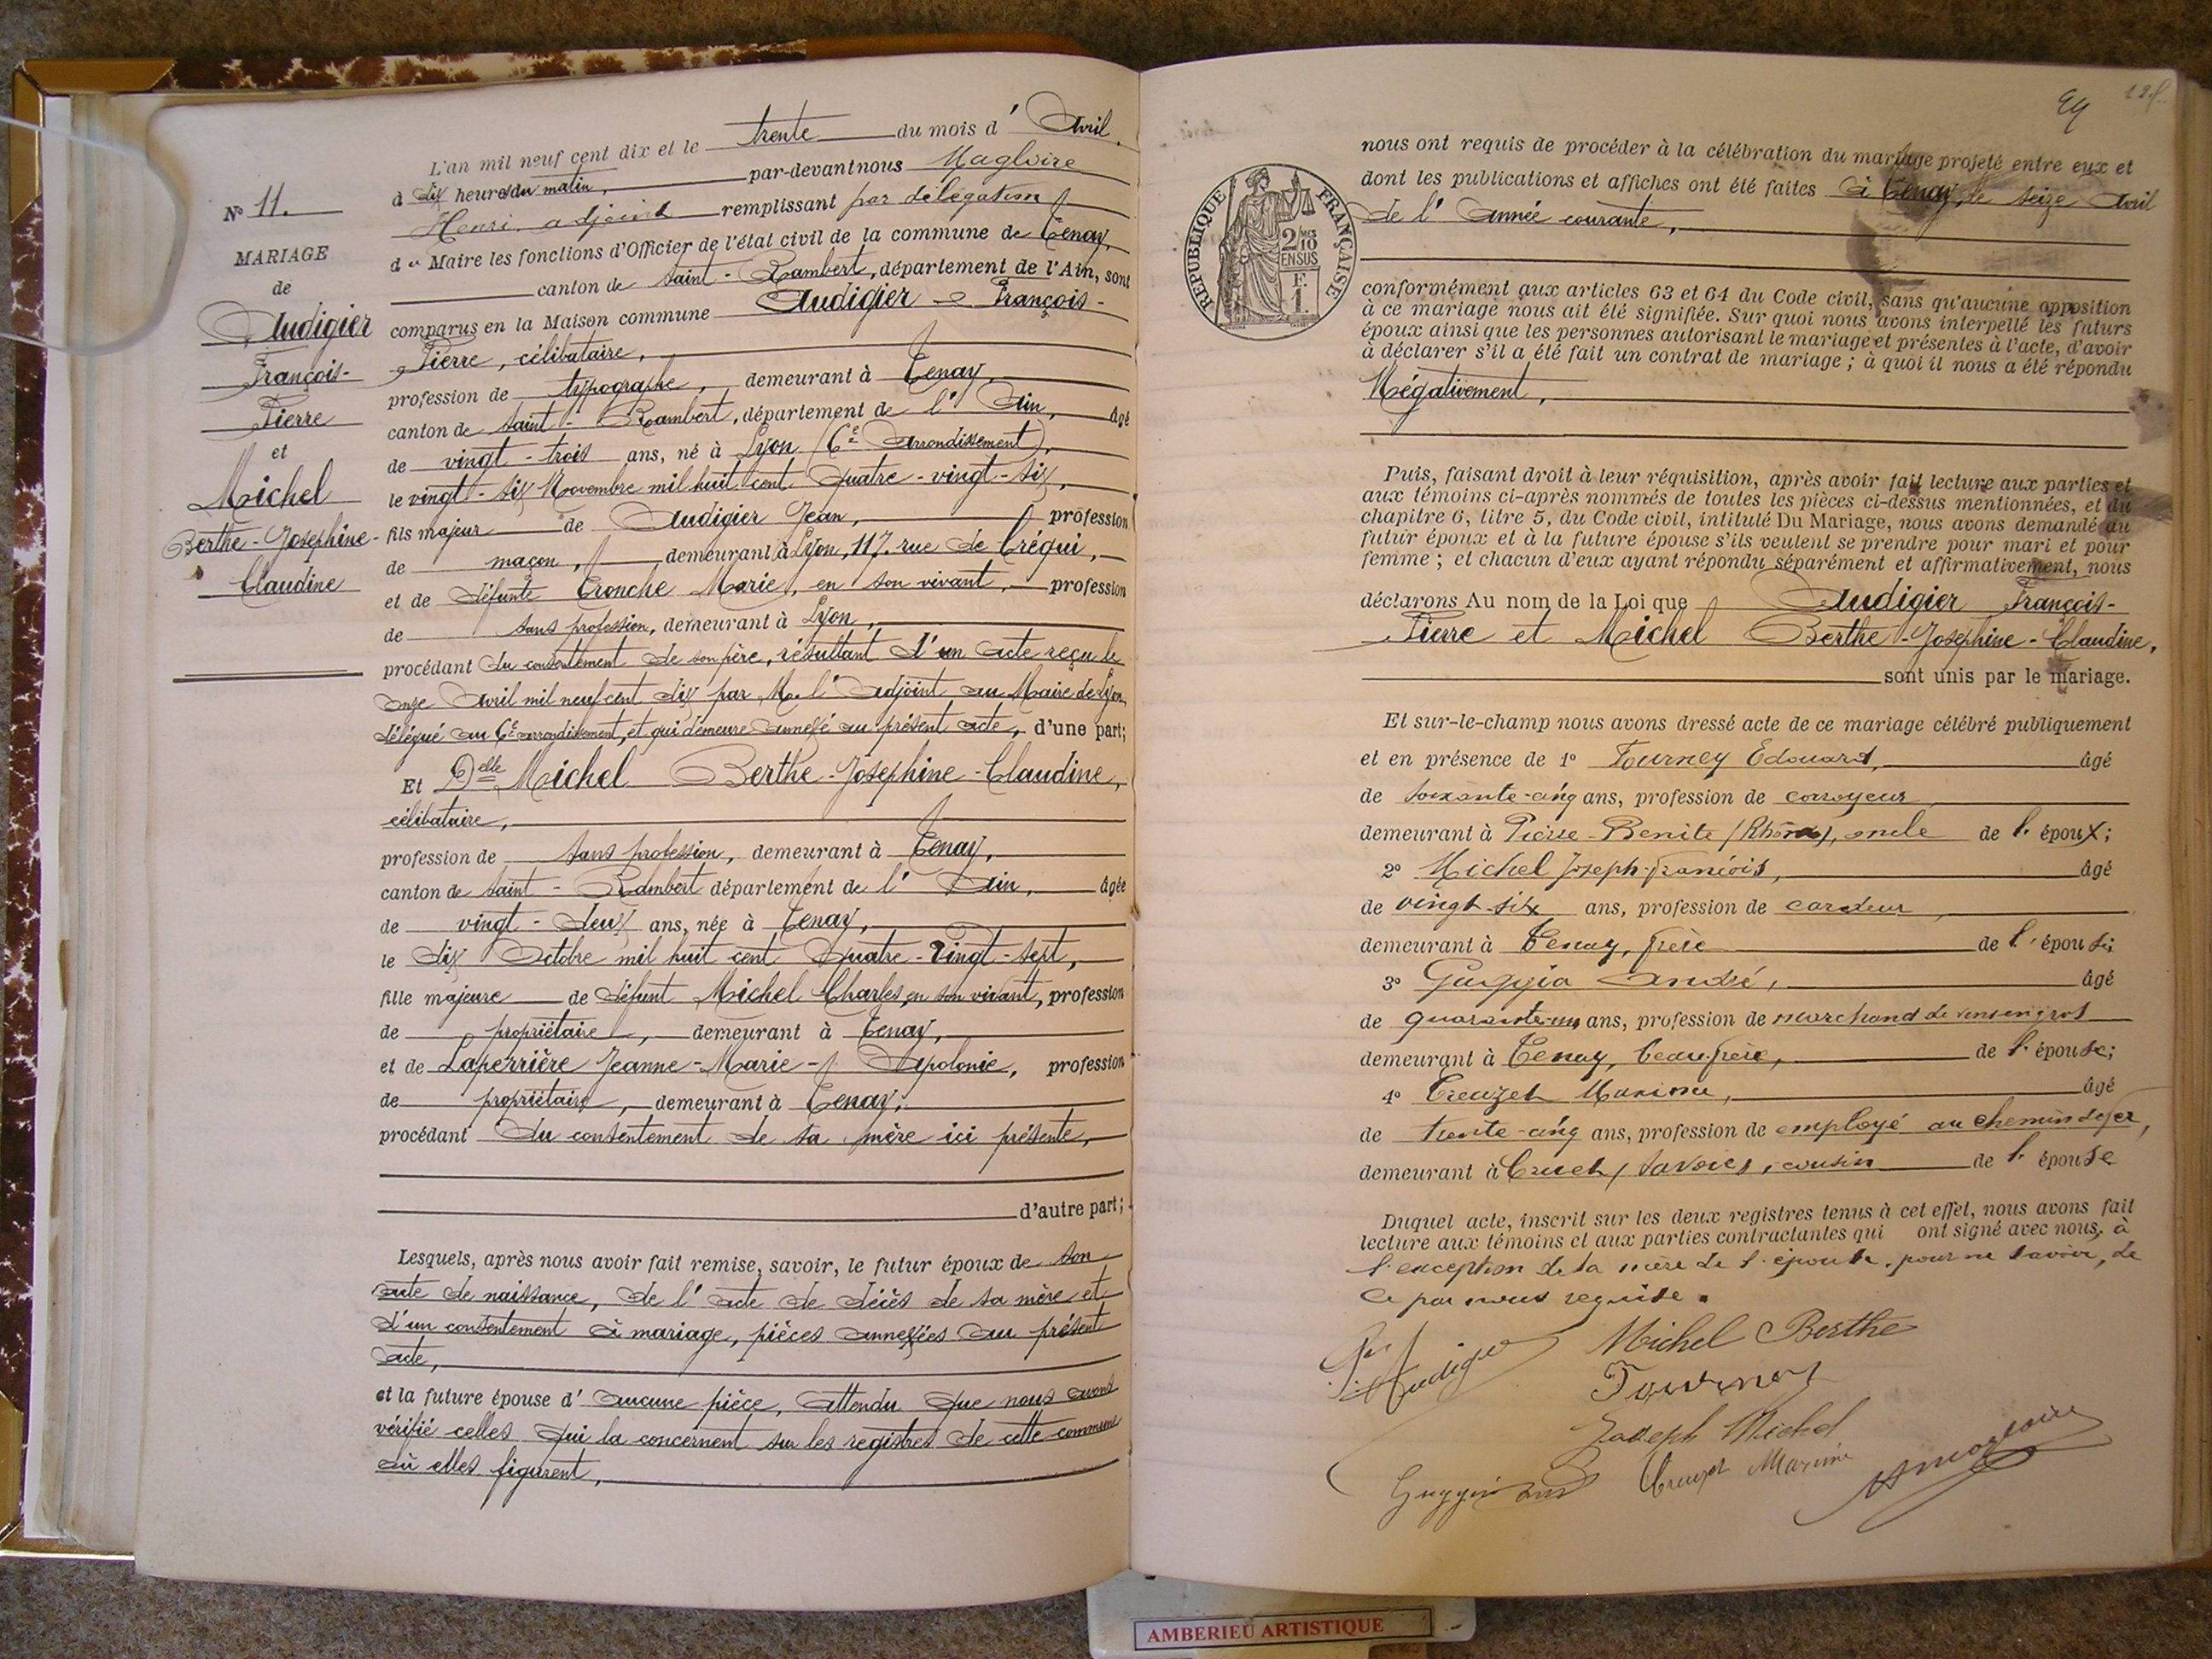 N° 11.
MARIAGE
de
Audigier
François-
Pierre
et
Michel
Berthe-Josephine-
Claudine
L'an mil neuf cent dix et le trente du mois d'Avril,
à dix heures du matin, par-devant nous Magloire
Henri adjoint remplissant par délégation
du Maire les fonctions d'Officier de l'état civil de la commune de Tenay,
canton de Saint-Rambert, département de l'Ain, sont
comparus en la Maison commune Audigier François-
Pierre, célibataire,
profession de typographe, demeurant à Tenay,
canton de Saint-Rambert, département de l'Ain, âgé
de vingt-trois ans, né à Lyon (6e Arrondissement),
le vingt-six Novembre mil huit cent quatre-vingt-six,
fils majeur de Audigier Jean, profession
de maçon, demeurant à Lyon, 117, rue de Créqui,
et de défunte Tronche Marie, en son vivant, profession
de sans profession, demeurant à Lyon,
procédant du consentement de son père, résultant d'un acte reçu le
onze Avril mil neuf cent dix par M. l'Adjoint au Maire de Lyon,
délégué au 6e arrondissement, et qui demeure annexé au présent acte, d'une part;
Et Delle Michel Berthe-Josephine-Claudine,
célibataire,
profession de sans profession, demeurant à Tenay,
canton de Saint-Rambert département de l'Ain, âgée
de vingt-deux ans, née à Tenay,
le dix Octobre mil huit cent quatre-vingt-sept,
fille majeure de défunt Michel Charles, en son vivant, profession
de propriétaire, demeurant à Tenay,
et de Laperrière Jeanne-Marie-Apolonie, profession
de propriétaire, demeurant à Tenay,
procédant du consentement de sa mère ici présente,
d'autre part;
Lesquels, après nous avoir fait remise, savoir, le futur époux de son
acte de naissance, de l'acte de décès de sa mère et
d'un consentement à mariage, pièces annexées au présent
acte,
et la future épouse d'aucune pièce, attendu que nous avons
vérifié celles qui la concernent sur les registres de cette commune
où elles figurent,
nous ont requis de procéder à la célébration du mariage projeté entre eux et
dont les publications et affiches ont été faites à Tenay, le seize Avril
de l'année courante,
RÉPUBLIQUE FRANÇAISE
2/10 MES
EN SUS
F.
1.
conformément aux articles 63 et 64 du Code civil, sans qu'aucune opposition
à ce mariage nous ait été signifiée. Sur quoi nous avons interpellé les futurs
époux ainsi que les personnes autorisant le mariage et présentes à l'acte, d'avoir
à déclarer s'il a été fait un contrat de mariage; à quoi il nous a été répondu
Négativement,
Puis, faisant droit à leur réquisition, après avoir fait lecture aux parties et
aux témoins ci-après nommés de toutes les pièces ci-dessus mentionnées, et du
chapitre 6, titre 5, du Code civil, intitulé Du Mariage, nous avons demandé au
futur époux et à la future épouse s'ils veulent se prendre pour mari et pour
femme; et chacun d'eux ayant répondu séparément et affirmativement, nous
déclarons Au nom de la Loi que Audigier François-
Pierre et Michel Berthe-Josephine-Claudine,
sont unis par le mariage.
Et sur-le-champ nous avons dressé acte de ce mariage célébré publiquement
et en présence de 1° Tourney Edouard, âgé
de soixante-cinq ans, profession de corroyeur
demeurant à Pierre-Bénite (Rhône), oncle de l'époux;
2° Michel Joseph-François, âgé
de vingt-six ans, profession de cardeur,
demeurant à Tenay, frère de l'épouse;
3° Guggia André, âgé
de quarante-un ans, profession de marchand de vins en gros
demeurant à Tenay, beau-frère, de l'épouse;
4° Creuzet Maxime, âgé
de trente-cinq ans, profession de employé au chemin de fer,
demeurant à Cruet (Savoie), cousin de l'épouse
Duquel acte, inscrit sur les deux registres tenus à cet effet, nous avons fait
lecture aux témoins et aux parties contractantes qui ont signé avec nous, à
l'exception de la mère de l'épouse, pour ne savoir, de
ce par nous requise.
Audigier
Michel Berthe
Tourney
Joseph Michel
Creuzet Maxime
Hmagloire
AMBERIEU ARTISTIQUE